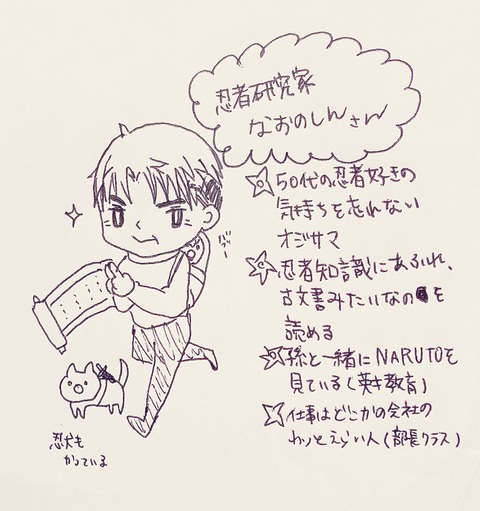 忍者研究家
なおのしんさん
50代の忍者好きの
気持ちを忘れない
オジサマ
忍者知識にあふれ、
古文書みたいなのを
読める
孫と一緒にNARUTOを
見ている(英才教育)
仕事はどこかの会社の
わりとえらい人(部長クラス)
忍犬も
かっている